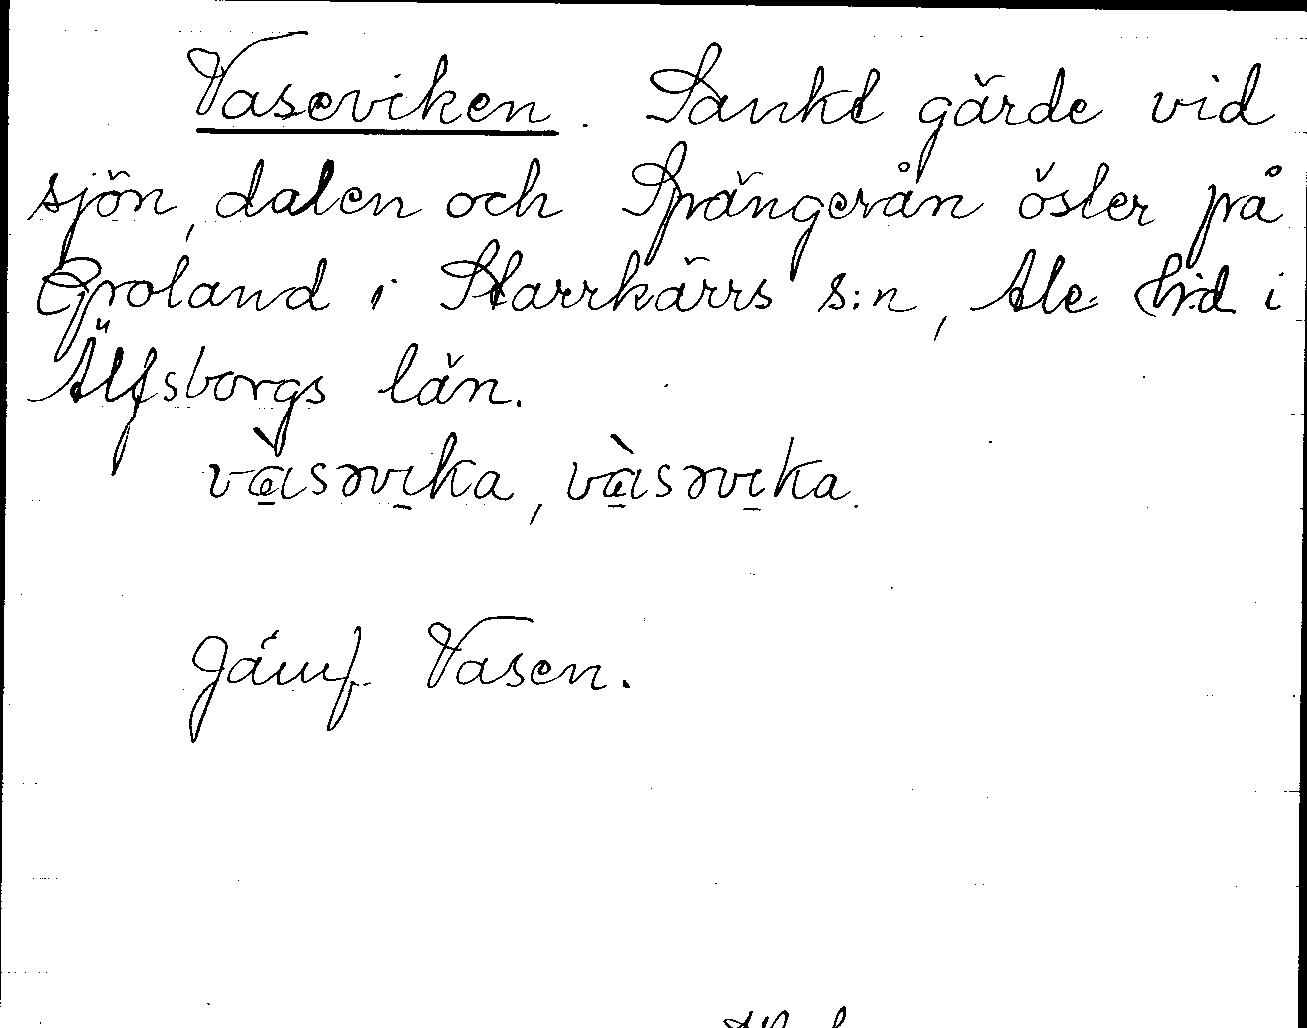 Vaseviken. Sankt gärde vid
sjön, dalen och Sprängerån öster på
Groland i Starrkärrs s:n, Ale h:d i
Älfsborgs län.
Jämf. Vasen.